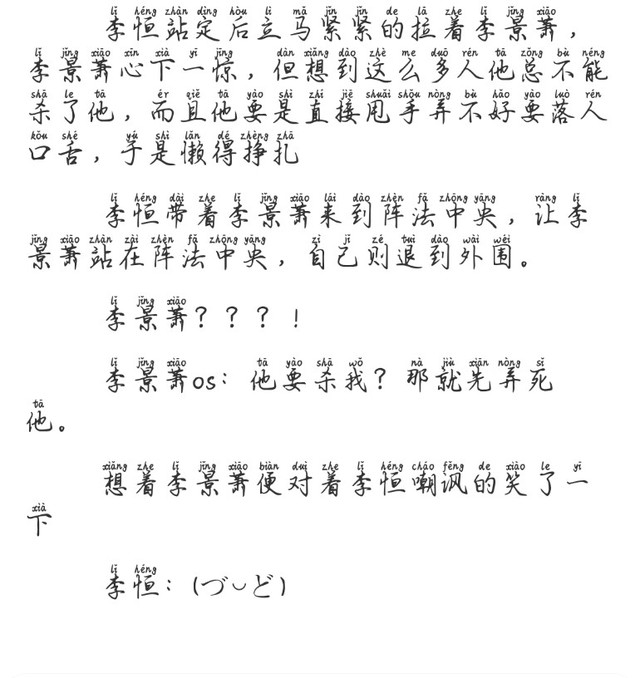 李恒站定后立马紧紧的拉着李景萧，
李景萧心下一惊，但想到这么多人他总不能
杀了他，而且他要是直接甩手弄不好要落人
口舌，于是懒得挣扎
李恒带着李景萧来到阵法中央，让李
景萧站在阵法中央，自己则退到外围。
李景萧？？？！
李景萧os：他要杀我？那就先弄死
他。
想着李景萧便对着李恒嘲讽的笑了一
下
李恒：(づ◡ど)